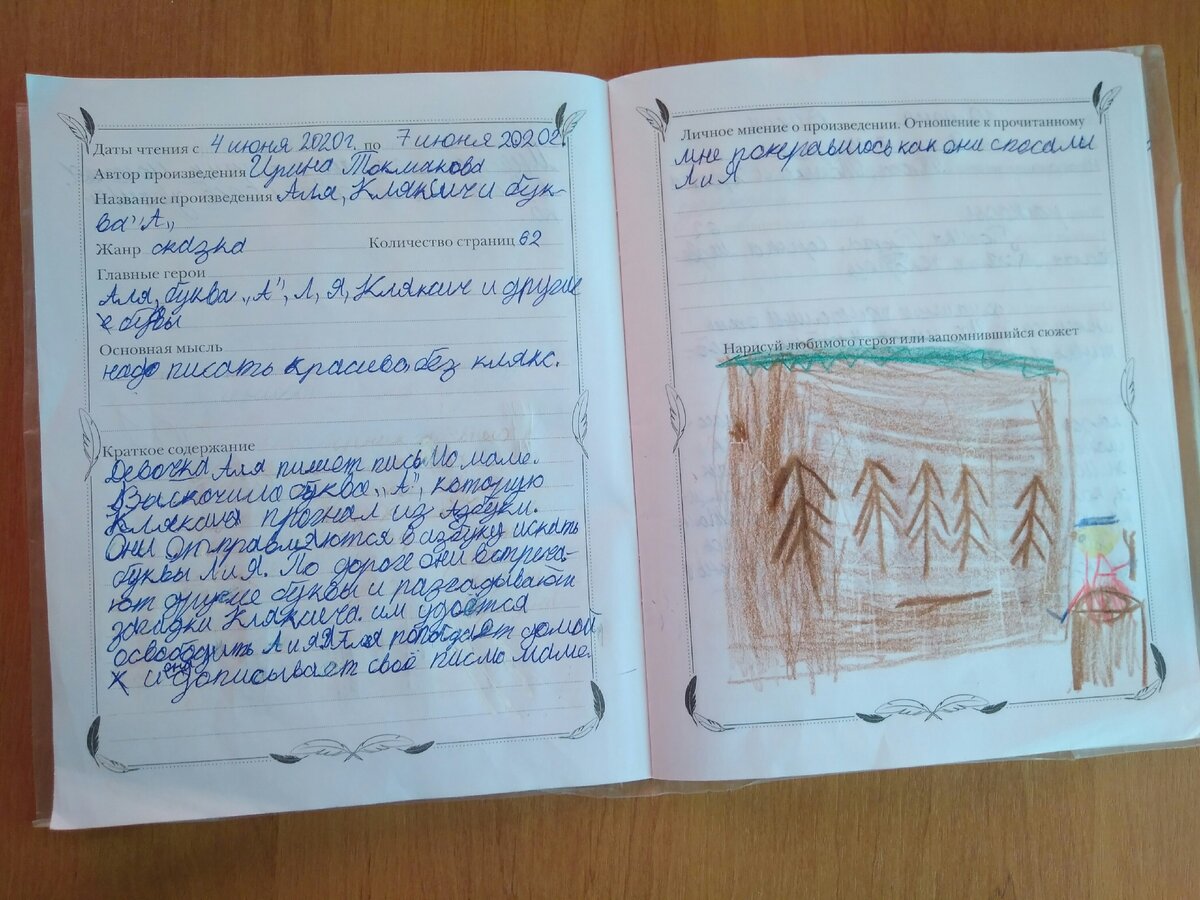 Даты чтения с 4 июня 2020г. по 7 июня 2020г.
Автор произведения Ирина Токмакова
Название произведения Аля, Кляксич и бук-
ва "А"
Жанр сказка Количество страниц 62
Главные герои
Аля, буква "А", Л, Я, Кляксич и другие
буквы
Основная мысль
надо писать красиво, без клякс.
Краткое содержание
Девочка Аля пишет письмо маме.
Выскочила буква "А", которую
Кляксич прогнал из азбуки.
Они отправляются в азбуку искать
буквы Л и Я. По дороге они встреча-
ют другие буквы и разгадывают
загадки Кляксича. им удаётся
освободить Л и Я Аля попадает домой
и дописывает своё писмо маме.
Личное мнение о произведении. Отношение к прочитанному
мне понравилось как они спосали
Л и Я
Нарисуй любимого героя или запомнившийся сюжет